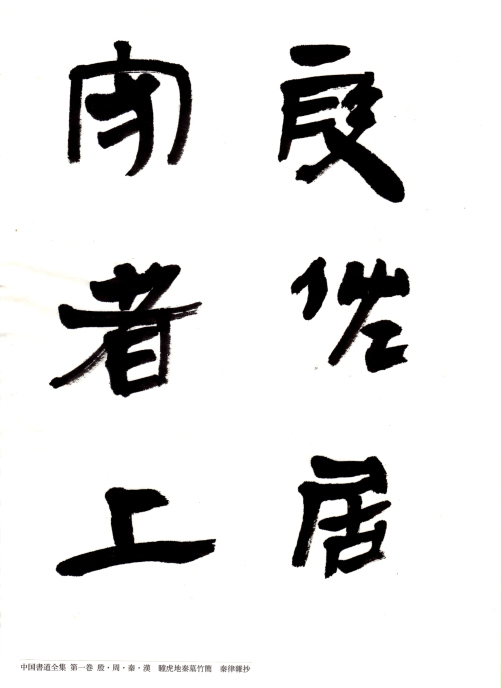 叚佐居
守者上
中国書道全集 第一巻 殷・周・秦・漢 睡虎地秦墓竹簡 秦律雜抄